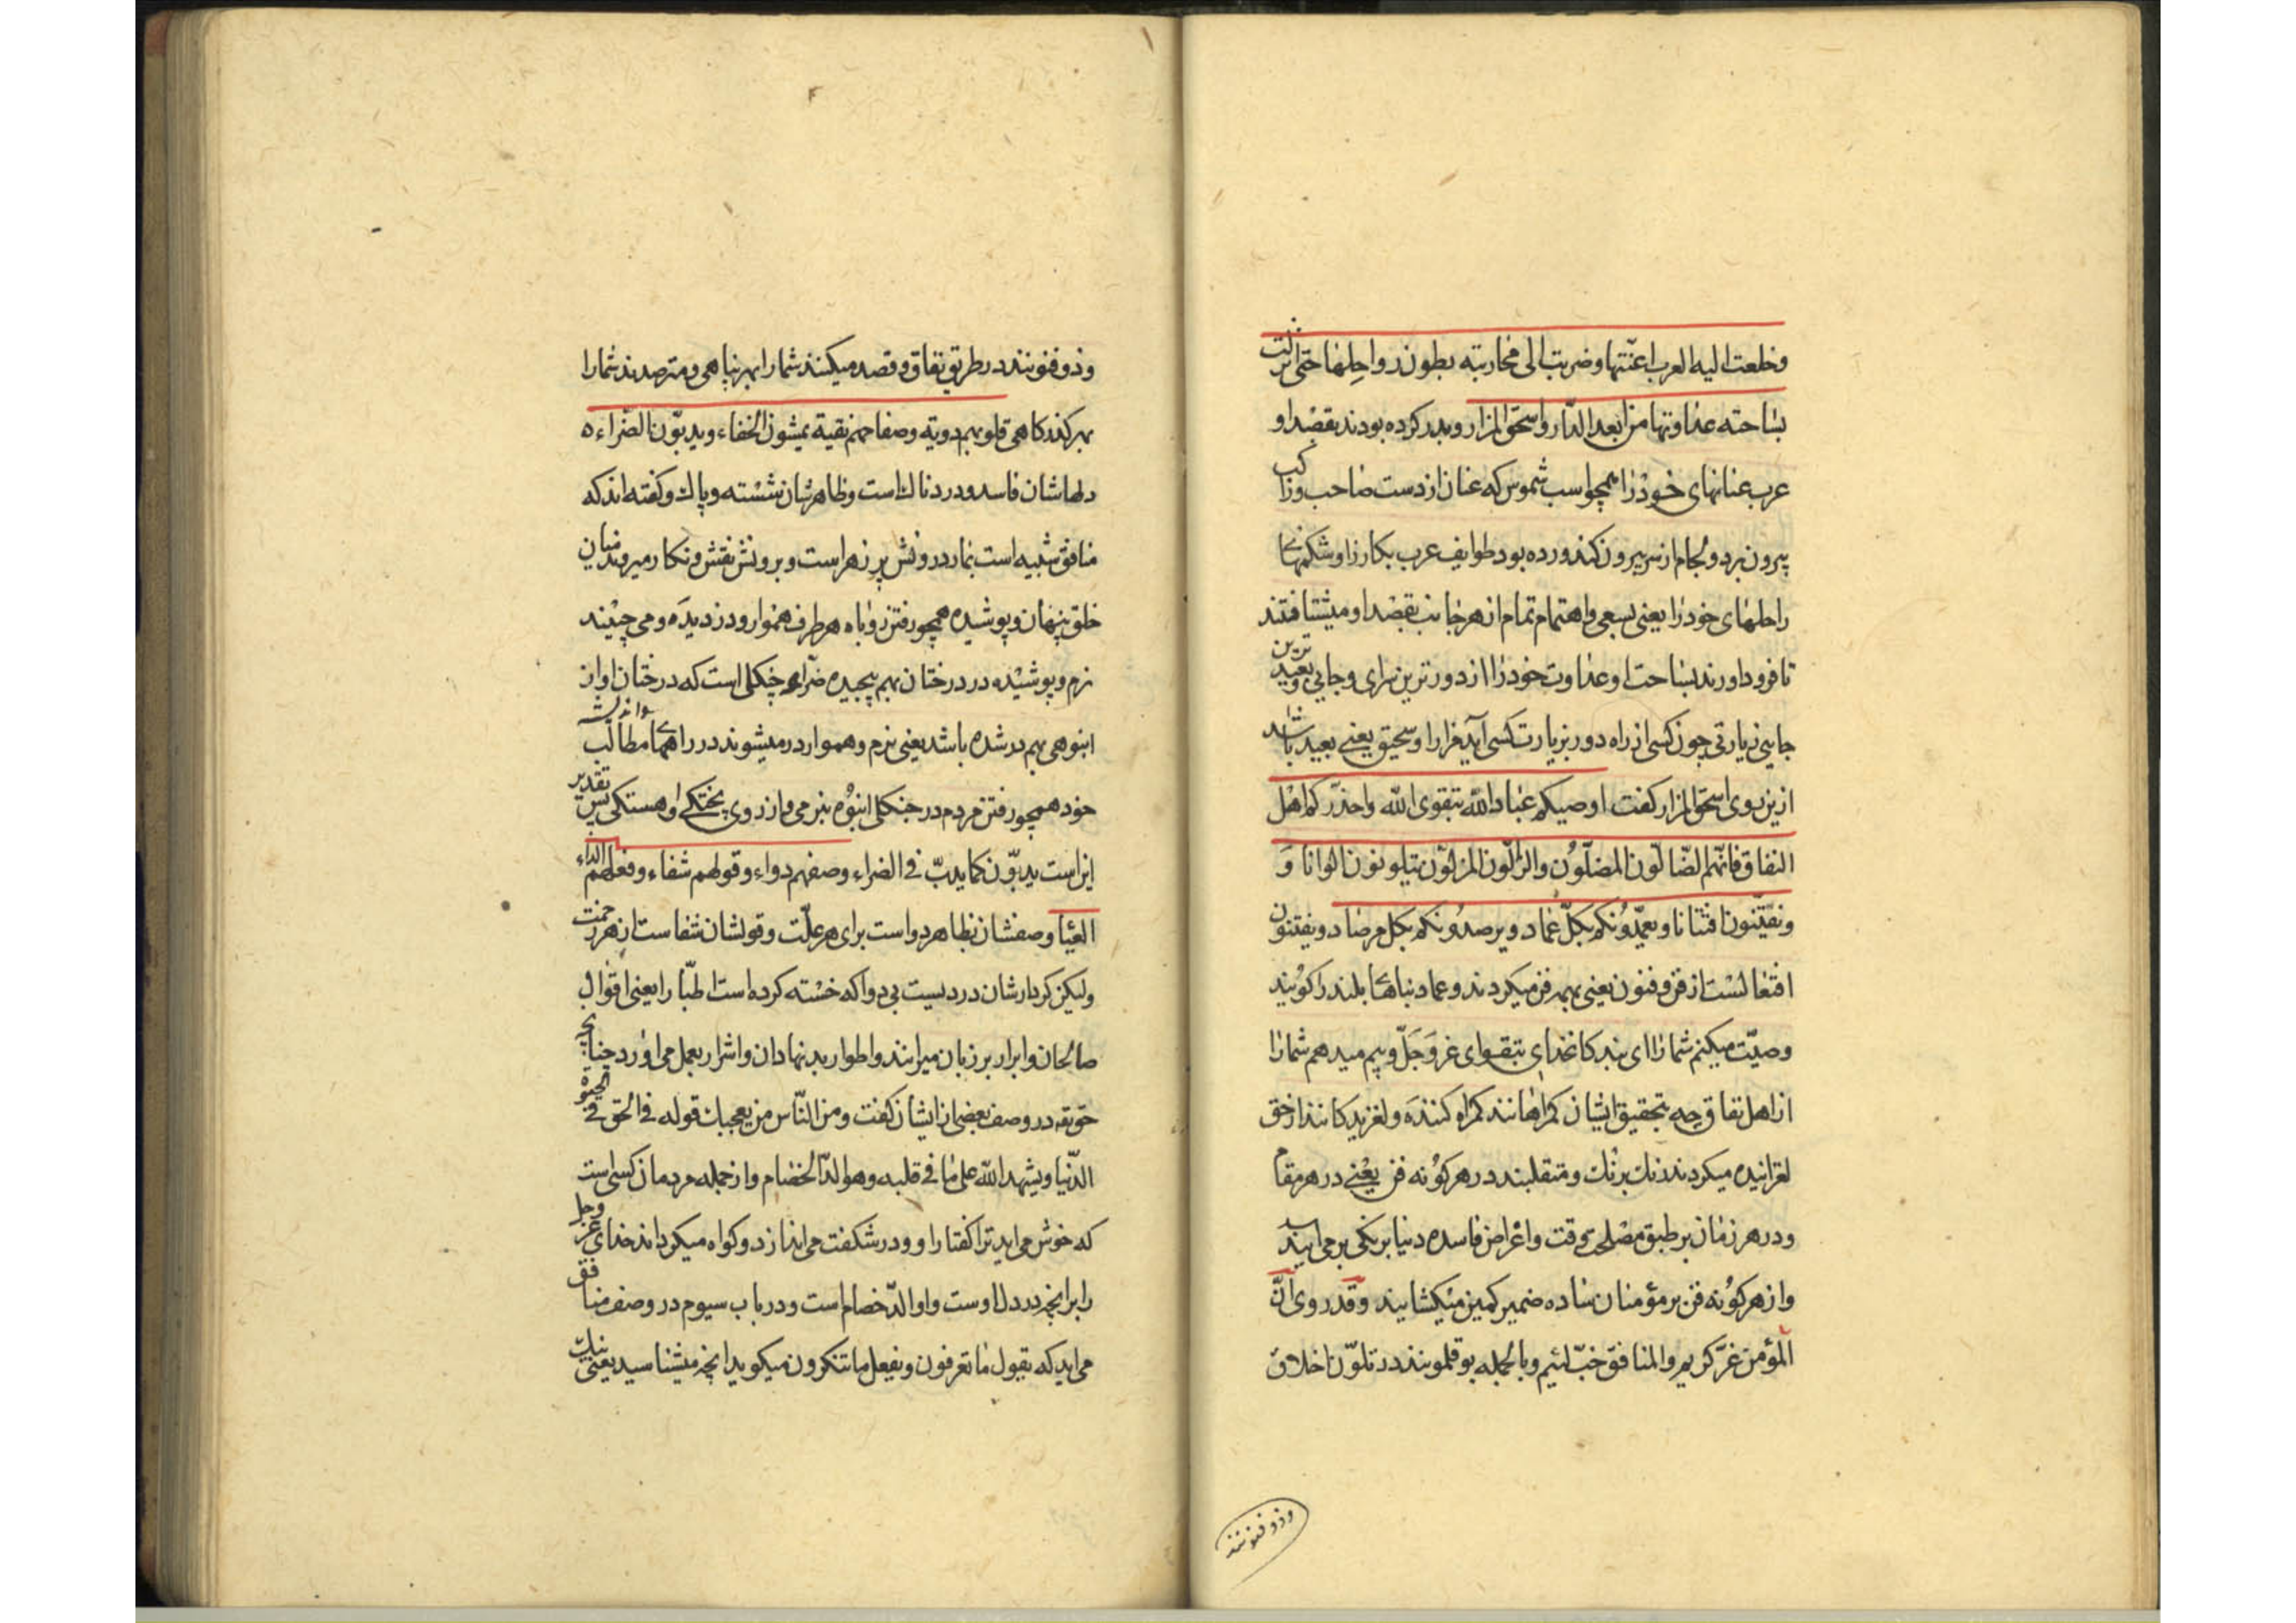 وخلعت الیه العرب اعنّتها وضربت الی محاربته بطون رواحلها حتی انزلت
بساحته عداوتها من ابعد الدّار واسحق المزار وبدر کرده بودند بقصد او
عرب عنانهای خود را همچو اسب شموس که عنان از دست صاحب و راکب
بیرون برد و لجام از سر بیرون کند و زده بود طوایف عرب بکارزار او شکمهای
راحلهای خود را یعنی بسعی و اهتمام تمام از هر جانب بقصد او میشتافتند
تا فرود اورند بساحت او عداوت خود را از دورترین سرای و جایی و بعیدترین
جایی زیارتی چون کسی از راه دور بزیارت کسی آید مزار او سحیق یعنی بعید باشد
ازین روی اسحق المزار کفت اوصیکم عباد الله بتقوی الله واحذّرکم اهل
النفاق فانّهم الضّالّون المضلّون والزّالّون المزلّون یتلوّنون الوانا وَ
ویفتنّون افتنانا ویعمّدونکم بکلّ عماد ویرصدونکم بکلّ مرصاد ویفتنون
افتعالست از فن و فنون یعنی بهر فن میکردند و عماد بناهای بلند را کویند
وصیّت میکنم شما را ای بندکان خدای بتقوای عزّ وَجَلّ و بیم میدهم شما را
از اهل نفاق چه بتحقیق ایشان کمراهانند کمراه کنندَه و لغزیدکانند از حق
لغزانیده میکردند رنك برنك و متقلبند در هر کونه فن یعنی در هر مقام
ودر هر زمان بر طبق مصلحت وقت و اغراض فاسده دنیا برنکی بر می ایند
واز هر کونه فن بر مؤمنان ساده ضمیر کمین میکشایند وقد روی انّ
المؤمن غرّ کریم والمنافق خبّ لئیم وبالجمله بوقلمونند در تلوّن اخلاق
وذوفنونند
وذوفنونند در طریق نفاق و قصد میکنند شما را بهر پناهی و مترصدند شما را
بهر کذرکاهی قلوبهم دویة وصفاحهم نقیة یمشون الخفاء ویدبّون الضراء ه
دلهاشان فاسد و دردناك است و ظاهرشان شسته و پاك و کفته اند که
منافق شبیه است بمار درونش پر زهر است و برونش نقش و نکار میروند میان
خلق پنهان و پوشیده همچو رفتن روباه هر طرف هموار و دزدیده و می چینند
نرم و پوشیده در درختان بهم پیچیده ضرّاء جنکلی است که درختان او از
انبوهی بهم در شده باشد یعنی نرم و هموار در میشوند در راههای مطالب
خود همچو رفتن مردم در جنکل انبوه بنرمی و از روی پختکی و اهستکی پس تقدیر
این است یدبّون کما یدبّ فی الضراء وصفهم دواء وقولهم شفاء وفعلهم الداء
العیاء وصفشان بظاهر دواست برای هر علّت و قولشان شفاست از هر زحمت
ولیکن کردارشان دردیست بی دوا که خسته کرده است اطبّا را یعنی اقوال
صالحان و ابرار بر زبان میرانند و اطوار بدنهادان و اشرار بعمل می اورد چنانچه
حق تعالی در وصف بعضی از ایشان کفت ومن النّاس من یعجبك قوله فی الحق فی الحیوة
الدّنیا ویشهد الله علی ما فی قلبه وهو الدّ الخصام واز جمله مردمان کسی است
که خوش می اید ترا کفتار او و در شکفت می اندازد و کواه میکرداند خدای عزّ وجل
را بر انچه در دل اوست واو الدّ خصام است ودر باب سیوم در وصف منافق
می اید که یقول ما تعرفون ویفعل ما تنکرون میکوید انچه میشناسید یعنی نیك